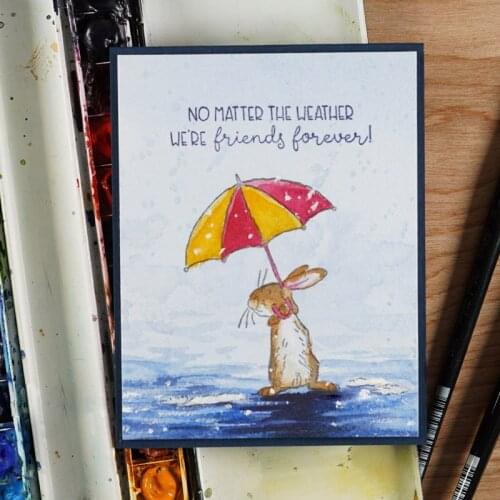 NO MATTER THE WEATHER
WE'RE friends forever!